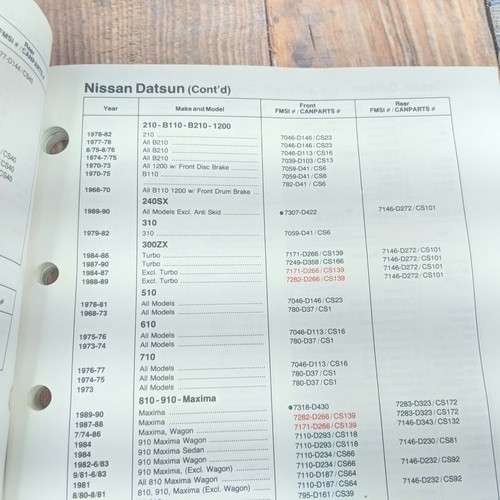 Rear
FMSI # / CANPARTS #
77-D144 / CS40
Nissan Datsun (Cont'd)
Year Make and Model Front FMSI # / CANPARTS # Rear FMSI # / CANPARTS #
210 - B110 - B210 - 1200
1978-82 210 7046-D146 / CS23
1977-78 All B210 7046-D146 / CS23
8/75-8/76 All B210 7046-D113 / CS16
1974-7/75 All B210 7039-D103 / CS13
1970-73 All 1200 w/ Front Disc Brake 7059-D41 / CS6
1970-75 B110 7059-D41 / CS6
782-D41 / CS6
1966-70 All B110 1200 w/ Front Drum Brake
240SX
1989-90 All Models Excl. Anti Skid ●7307-D422 7146-D272 / CS101
310
1979-82 310 7059-D41 / CS6
300ZX
1984-86 Turbo 7171-D266 / CS139 7146-D272 / CS101
1987-90 Turbo 7249-D358 / CS166 7146-D272 / CS101
1984-87 Excl. Turbo 7171-D266 / CS139 7146-D272 / CS101
1988-89 Excl. Turbo 7282-D266 / CS139 7146-D272 / CS101
510
1978-81 All Models 7046-D146 / CS23
1968-73 All Models 780-D37 / CS1
610
1975-76 All Models 7046-D113 / CS16
1973-74 All Models 780-D37 / CS1
710
1976-77 All Models 7046-D113 / CS16
1974-75 All Models 780-D37 / CS1
1973 All Models 780-D37 / CS1
810 - 910 - Maxima
1989-90 Maxima ●7318-D430 7283-D323 / CS172
1987-88 Maxima 7282-D266 / CS139 7283-D323 / CS172
7/74-86 Maxima, Wagon 7171-D266 / CS139 7146-D343 / CS132
1984 910 Maxima Wagon 7110-D293 / CS118
1984 910 Maxima Sedan 7110-D293 / CS118 7146-D230 / CS81
1982-6/83 910 Maxima Wagon 7110-D234 / CS66
9/81-6/83 910 Maxima, (Excl. Wagon) 7110-D234 / CS66 7146-D232 / CS92
1981 All 810 Maxima Wagon 7110-D187 / CS64
8/80-8/81 810, 910, Maxima (Excl. Wagon) 7110-D187 / CS64 7146-D232 / CS92
795-D161 / CS39